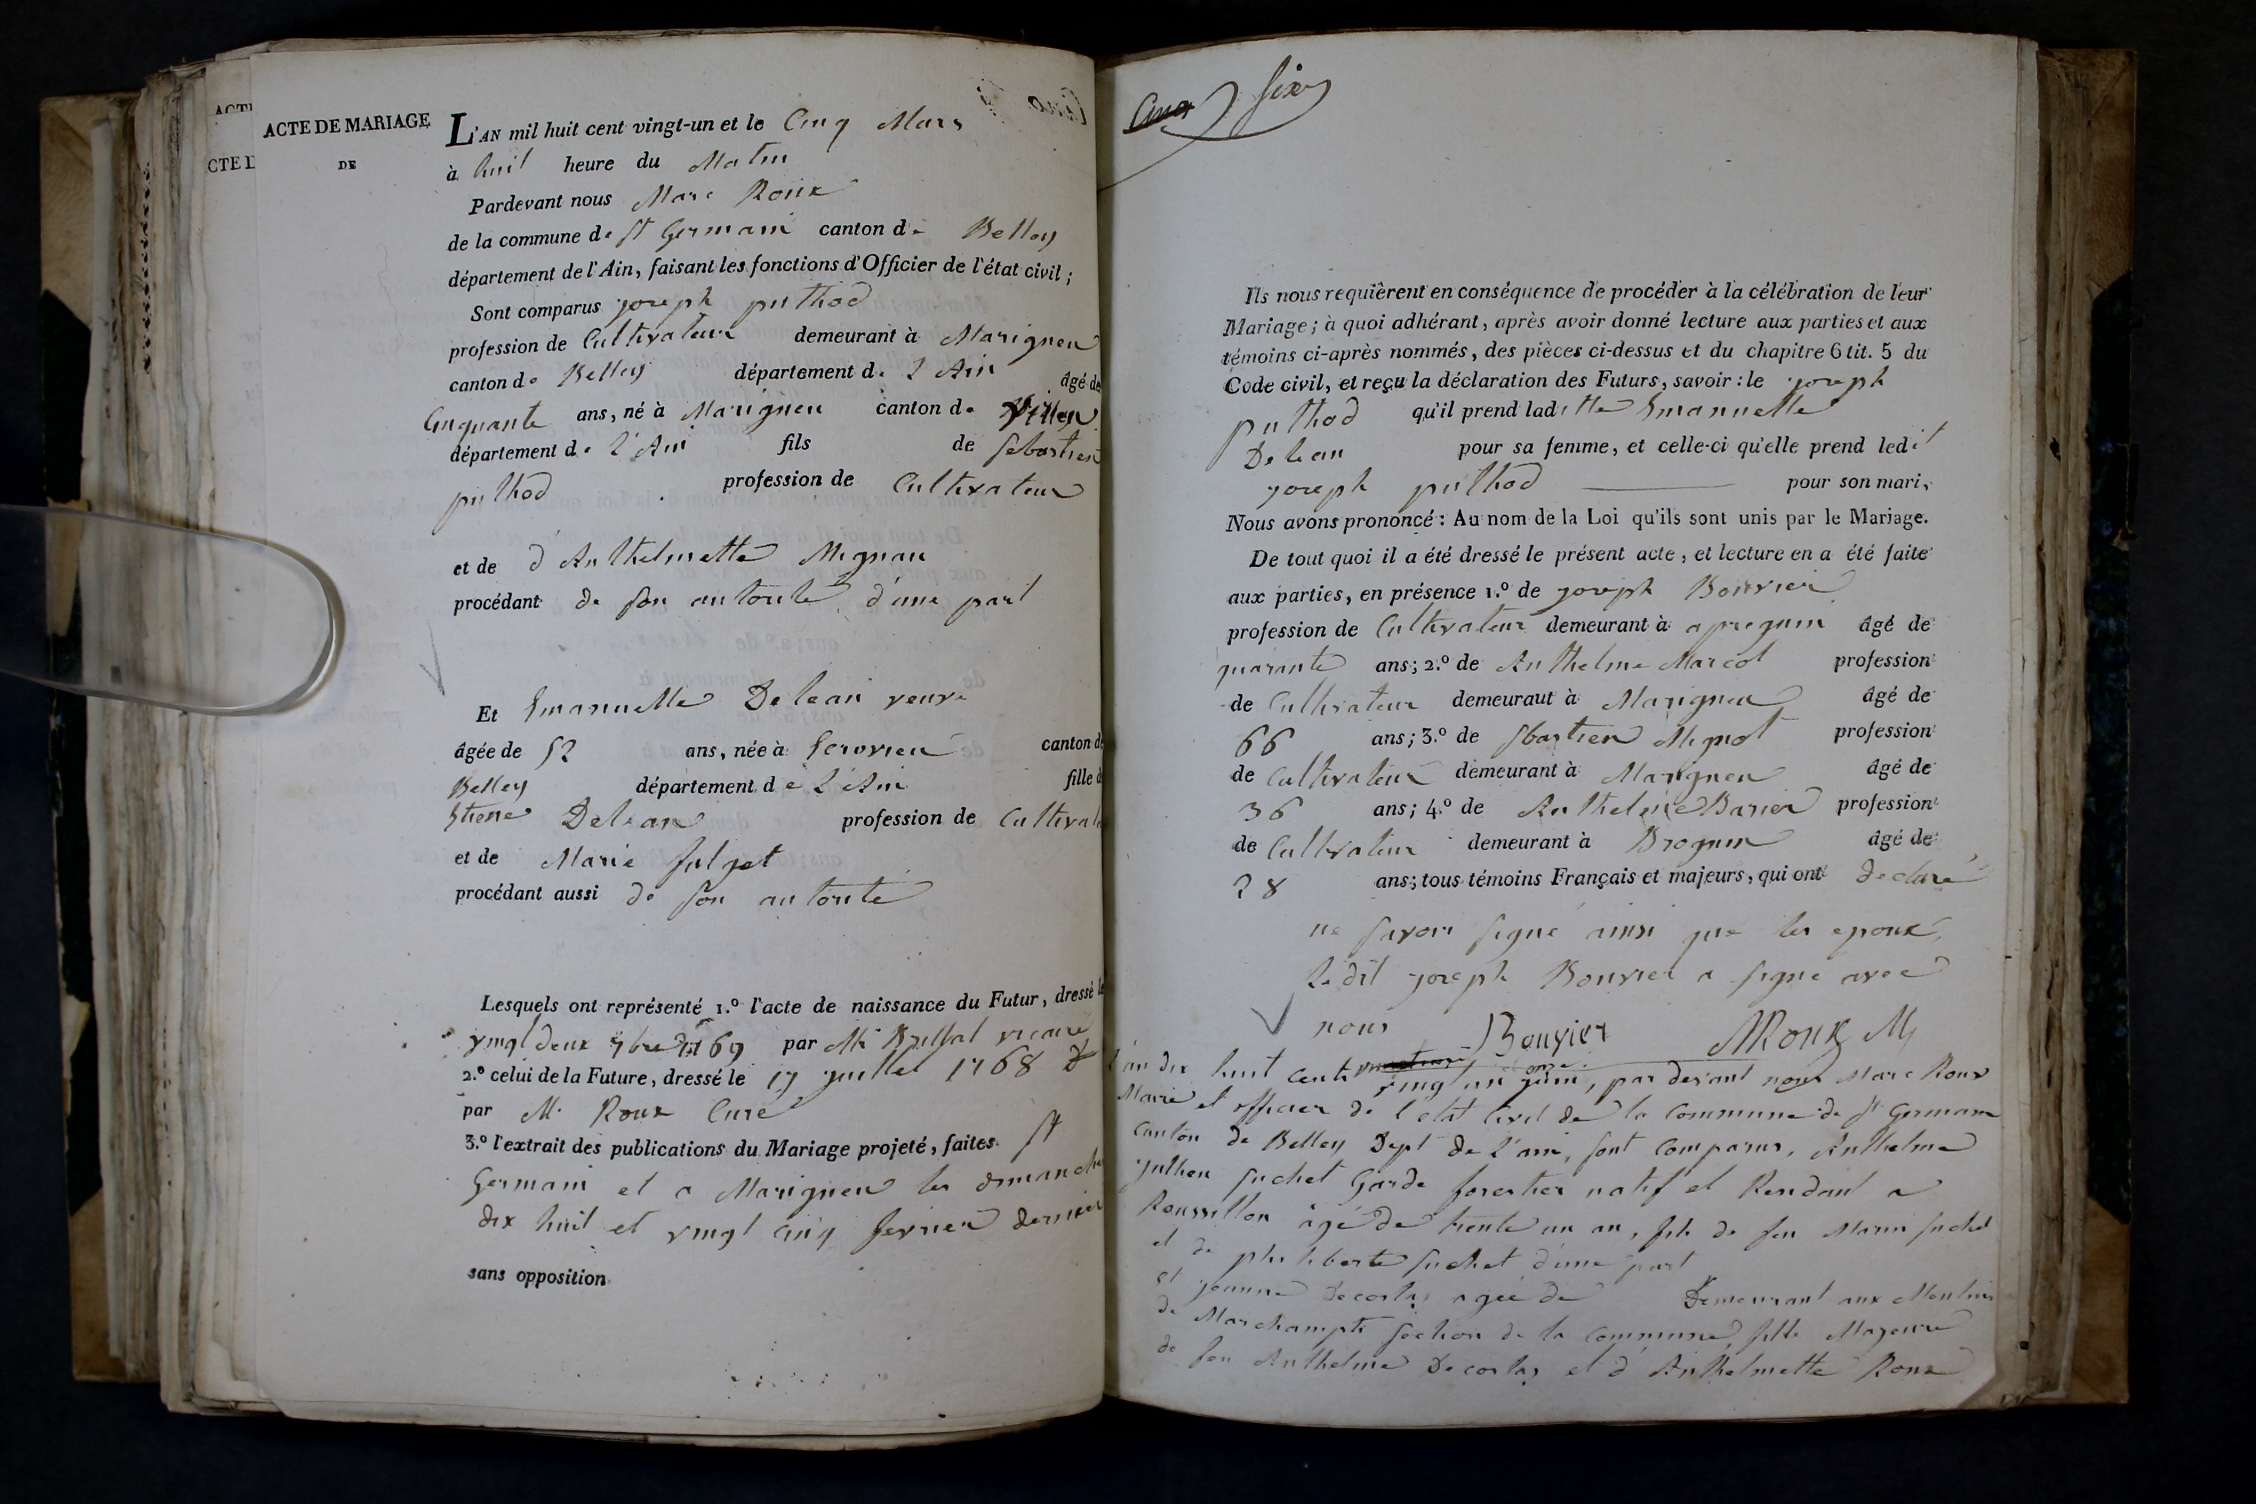 ACTE DE MARIAGE
DE
L'AN mil huit cent vingt-un et le Cinq Mars
à huit heure du Matin
Pardevant nous Marc Roux
de la commune de St Germain canton de Belley
département de l'Ain, faisant les fonctions d'Officier de l'état civil;
Sont comparus joseph puthod
profession de Cultivateur demeurant à Marignieu
canton de Belley département de l'Ain âgé de
Cinquante ans, né à Marignieu canton de
département de l'Ain fils de Sebastien
puthod profession de Cultivateur
et de d Anthelmette Mignau
procédant de son autorité d'une part
Et Emanuelle Delean veuve
âgée de 52 ans, née à canton de
Belley département de l'Ain fille d
Etiene Delean profession de Cultivate
et de Marie
procédant aussi de son autorité
Lesquels ont représenté 1.º l'acte de naissance du Futur, dressé le
vingt deux 9bre 1769 par Mr vicaire
2.º celui de la Future, dressé le 17 juillet 1768
par M. Roux Curé
3.º l'extrait des publications du Mariage projeté, faites St
Germain et a Marignieu les dimanche
dix huit et vingt cinq fevrier dernier
sans opposition
Cinq six
Ils nous requièrent en conséquence de procéder à la célébration de leur
Mariage; à quoi adhérant, après avoir donné lecture aux parties et aux
témoins ci-après nommés, des pièces ci-dessus et du chapitre 6 tit. 5 du
Code civil, et reçu la déclaration des Futurs, savoir: le joseph
puthod qu'il prend laditte Emanuelle
Delean pour sa femme, et celle-ci qu'elle prend ledit
joseph puthod pour son mari,
Nous avons prononcé: Au nom de la Loi qu'ils sont unis par le Mariage.
De tout quoi il a été dressé le présent acte, et lecture en a été faite
aux parties, en présence 1.º de joseph Bouvier
profession de Cultivateur demeurant à apregnin âgé de
quarante ans; 2.º de Anthelme Marcot profession
de Cultivateur demeuraut à Marignieu âgé de
66 ans; 3.º de Sbastien Mignot profession
de Cultivateur demeurant à Marignieu âgé de
36 ans; 4.º de Anthelme Barier profession
de Cultivateur demeurant à Brognin âgé de
28 ans; tous témoins Français et majeurs, qui ont declaré
ne savoir signé ainsi que les epoux,
Ledit joseph Bouvier a signé avec
nous Bouvier MRoux M
l'an dix huit cents vingt un et onze juin, par devant nous Marc Roux
Maire et officier de l'etat civil de la commune de St Germain
canton de Belley Dept de l'ain, sont comparus, Anthelme
julhen suchet Garde forestier natif et Residant a
Roussillon âgé de trente un an, fils de feu Marin suchet
et de philiberte suchet d'une part
et jeanne Decostas agée de Demeurant aux Moulins
de Marchampts section de la commune, fille Majeure
de feu Anthelme Decostas et d'Anthelmette Roux